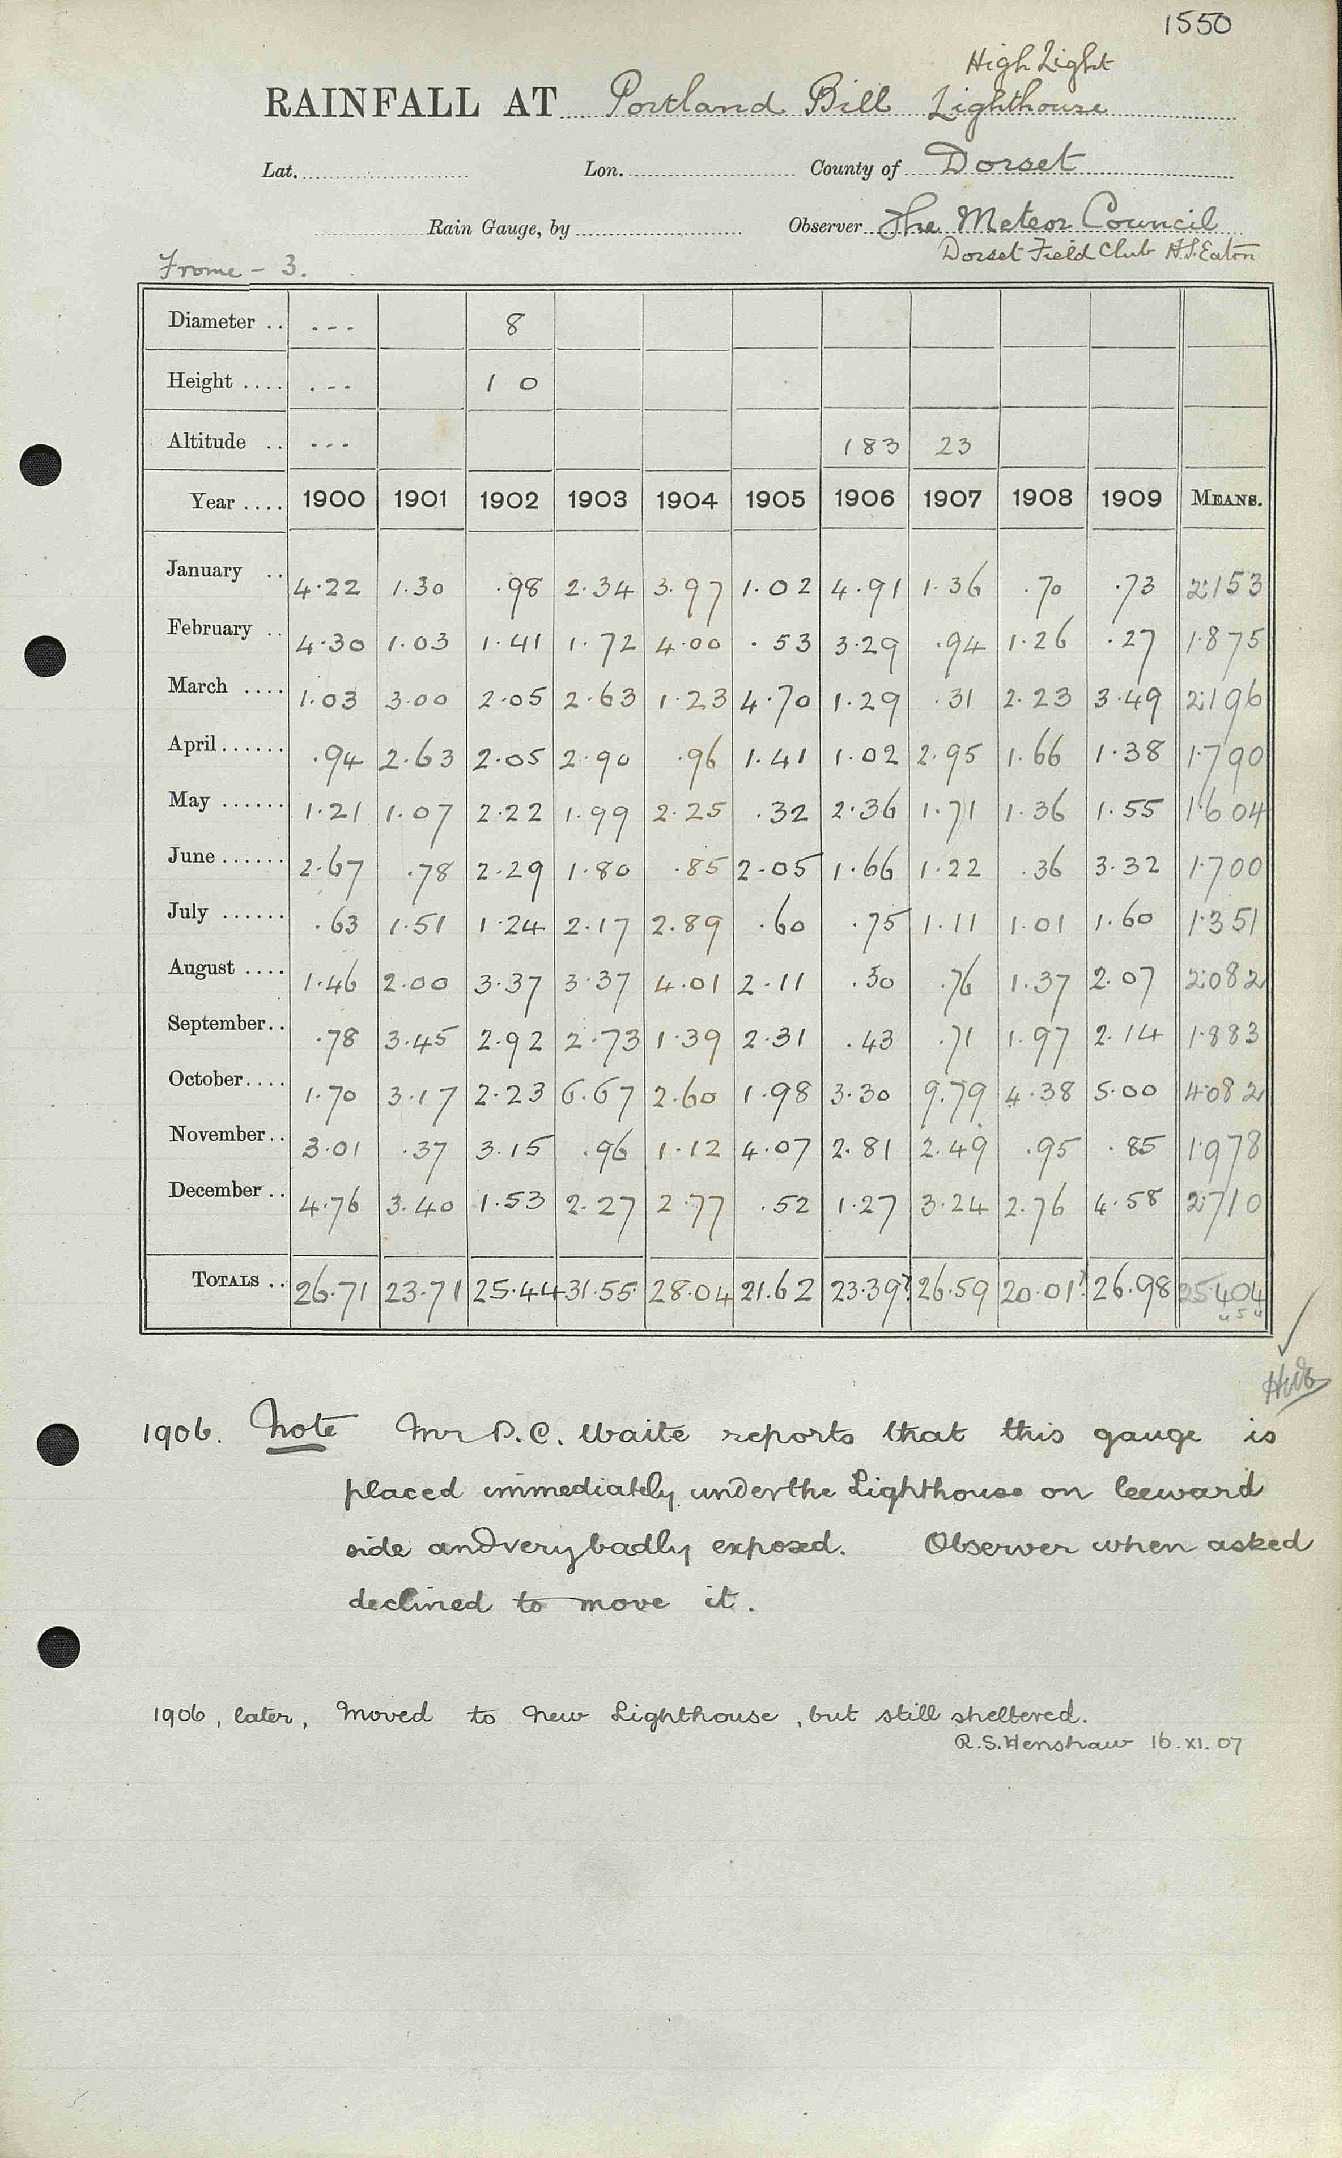 1550
High Light
RAINFALL AT Portland Bill Lighthouse
Lat. Lon. County of Dorset
Rain Gauge, by Observer The Meteor Council
Dorset Field Club H.S. Eaton
Frome - 3.
Diameter .. --- 8
Height .... --- 1 0
Altitude .. --- 183 23
Year .... 1900 1901 1902 1903 1904 1905 1906 1907 1908 1909 MEANS.
January .. 4.22 1.30 .98 2.34 3.97 1.02 4.91 1.36 .70 .73 2.153
February .. 4.30 1.03 1.41 1.72 4.00 .53 3.29 .94 1.26 .27 1.875
March .... 1.03 3.00 2.05 2.63 1.23 4.70 1.29 .31 2.23 3.49 2.196
April...... .94 2.63 2.05 2.90 .96 1.41 1.02 2.95 1.66 1.38 1.790
May ...... 1.21 1.07 2.22 1.99 2.25 .32 2.36 1.71 1.36 1.55 1.604
June ...... 2.67 .78 2.29 1.80 .85 2.05 1.66 1.22 .36 3.32 1.700
July ...... .63 1.51 1.24 2.17 2.89 .60 .75 1.11 1.01 1.60 1.351
August .... 1.46 2.00 3.37 3.37 4.01 2.11 .30 .76 1.37 2.07 2.082
September.. .78 3.45 2.92 2.73 1.39 2.31 .43 .71 1.97 2.14 1.883
October.... 1.70 3.17 2.23 6.67 2.60 1.98 3.30 9.79 4.38 5.00 4.082
November.. 3.01 .37 3.15 .96 1.12 4.07 2.81 2.49 .95 .85 1.978
December .. 4.76 3.40 1.53 2.27 2.77 .52 1.27 3.24 2.76 4.58 2.710
TOTALS .. 26.71 23.71 25.44 31.55 28.04 21.62 23.39? 26.59 20.01? 26.98 25.404
" 5 "
1906. Note Mr D.C. Waite reports that this gauge is
placed immediately under the Lighthouse on leeward
side and very badly exposed. Observer when asked
declined to move it.
1906, later, Moved to new Lighthouse, but still sheltered.
R.S. Henshaw 16.XI.07